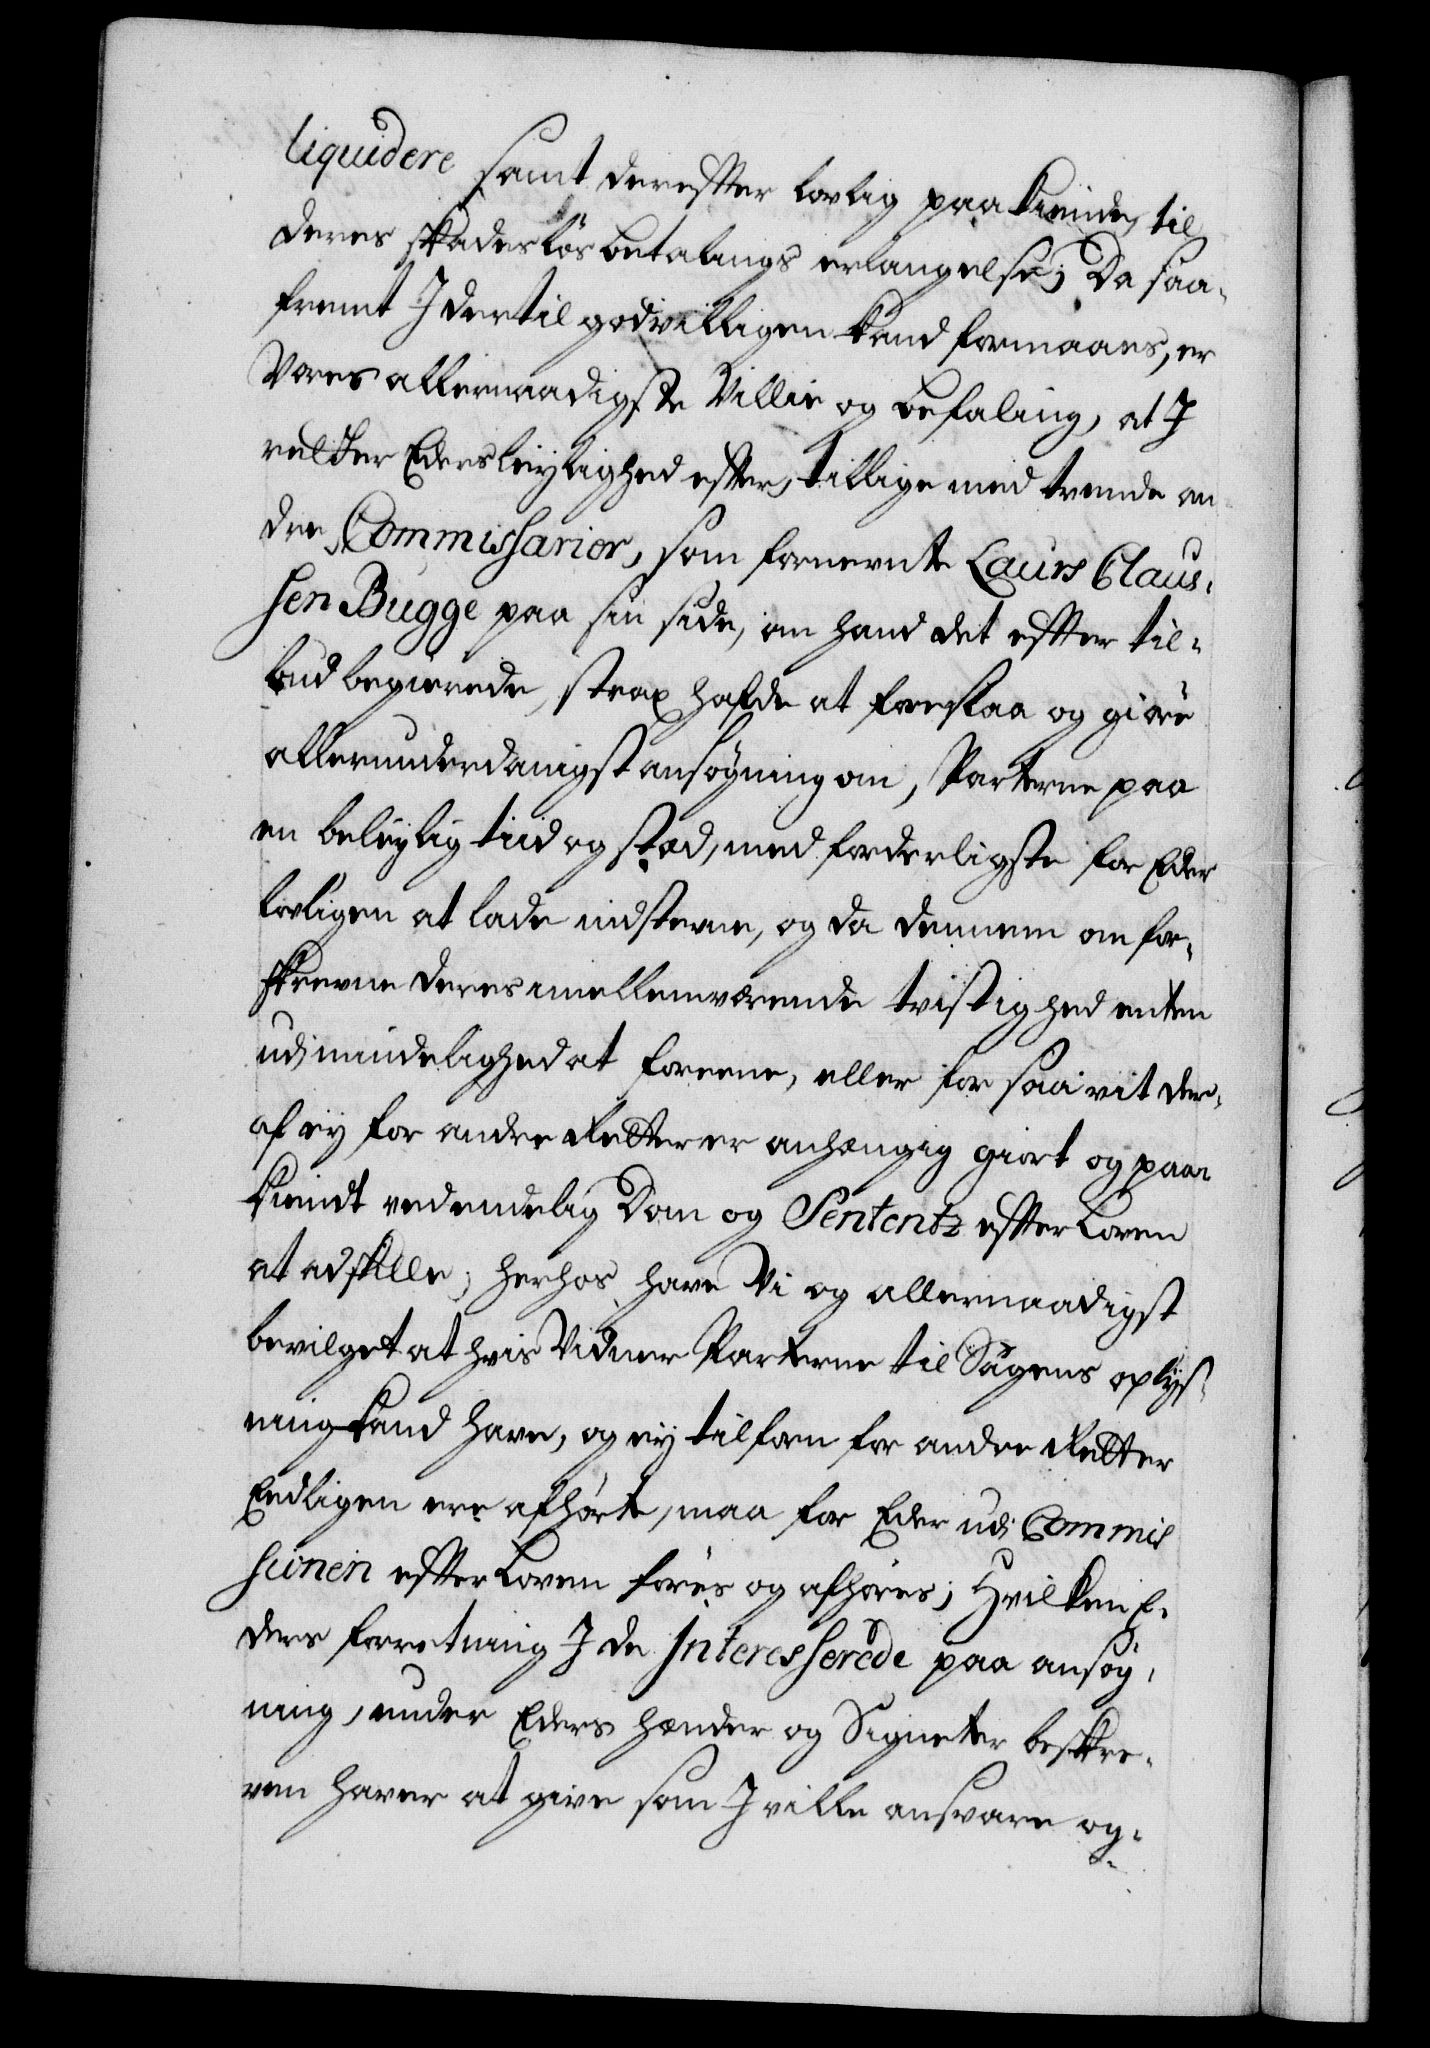 liquidere samt derefter lovlig paakiende, til
deres skadesløs betalings erlangelse; Da saa-
fremt I dertil godvilligen kand formaaes, er
Vores allernaadigste Villie og befaling, at I
retter Eders leylighed efter, tillige med tvende an
dre Commissarier, som fornevnte Laurs Claus-
sen Bugge paa sin side, om hand det efter til-
bud begierede, strax hafde at foreslaa og giøre
allerunderdanigst ansøgning om, Parterne paa
en beleylig tiid og stæd, med forderligste for Eder
lovligen at lade indstevne, og da dennem om for-
skrevne deres imellemværende tvistighed enten
udi mindelighed at foreene, eller for saa vit der-
af ey for andre Retter er anhængig giort og paa-
kiendt ved endelig Dom og Sententz efter Loven
at adskille; herhos have Vi og allernaadigst
bevilget at hvis Vidner Parterne til Sagens oplys-
ning kand have, og ey tilforn for andre Retter
Eedligen ere afhørte, maa for Eder udi Commis
sionen efter Loven føres og afhøres; Hvilken E-
ders forretning I de Interesserede paa ansøg-
ning, under Eders hænder og Signeter beskre-
ven haver at give som I ville ansvare og-